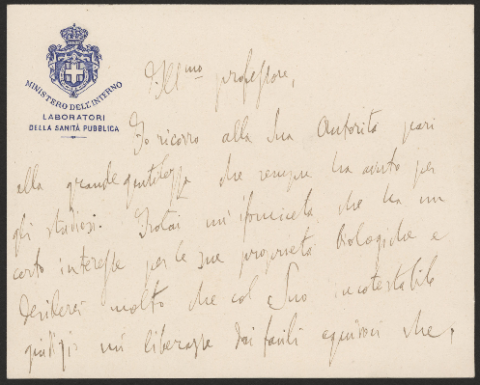 MINISTERO DELL'INTERNO
LABORATORI
DELLA SANITÀ PUBBLICA
Ill.mo professore,
Io ricorro alla Sua Autorità pari
alla grande gentilezza che sempre ha avuto per
gli studiosi. Trovai un' ifomiceta che ha un
certo interesse per le sue proprietà biologiche e
desidererei molto che col Suo incontestabile
giudizio mi liberasse dai facili equivoci che,